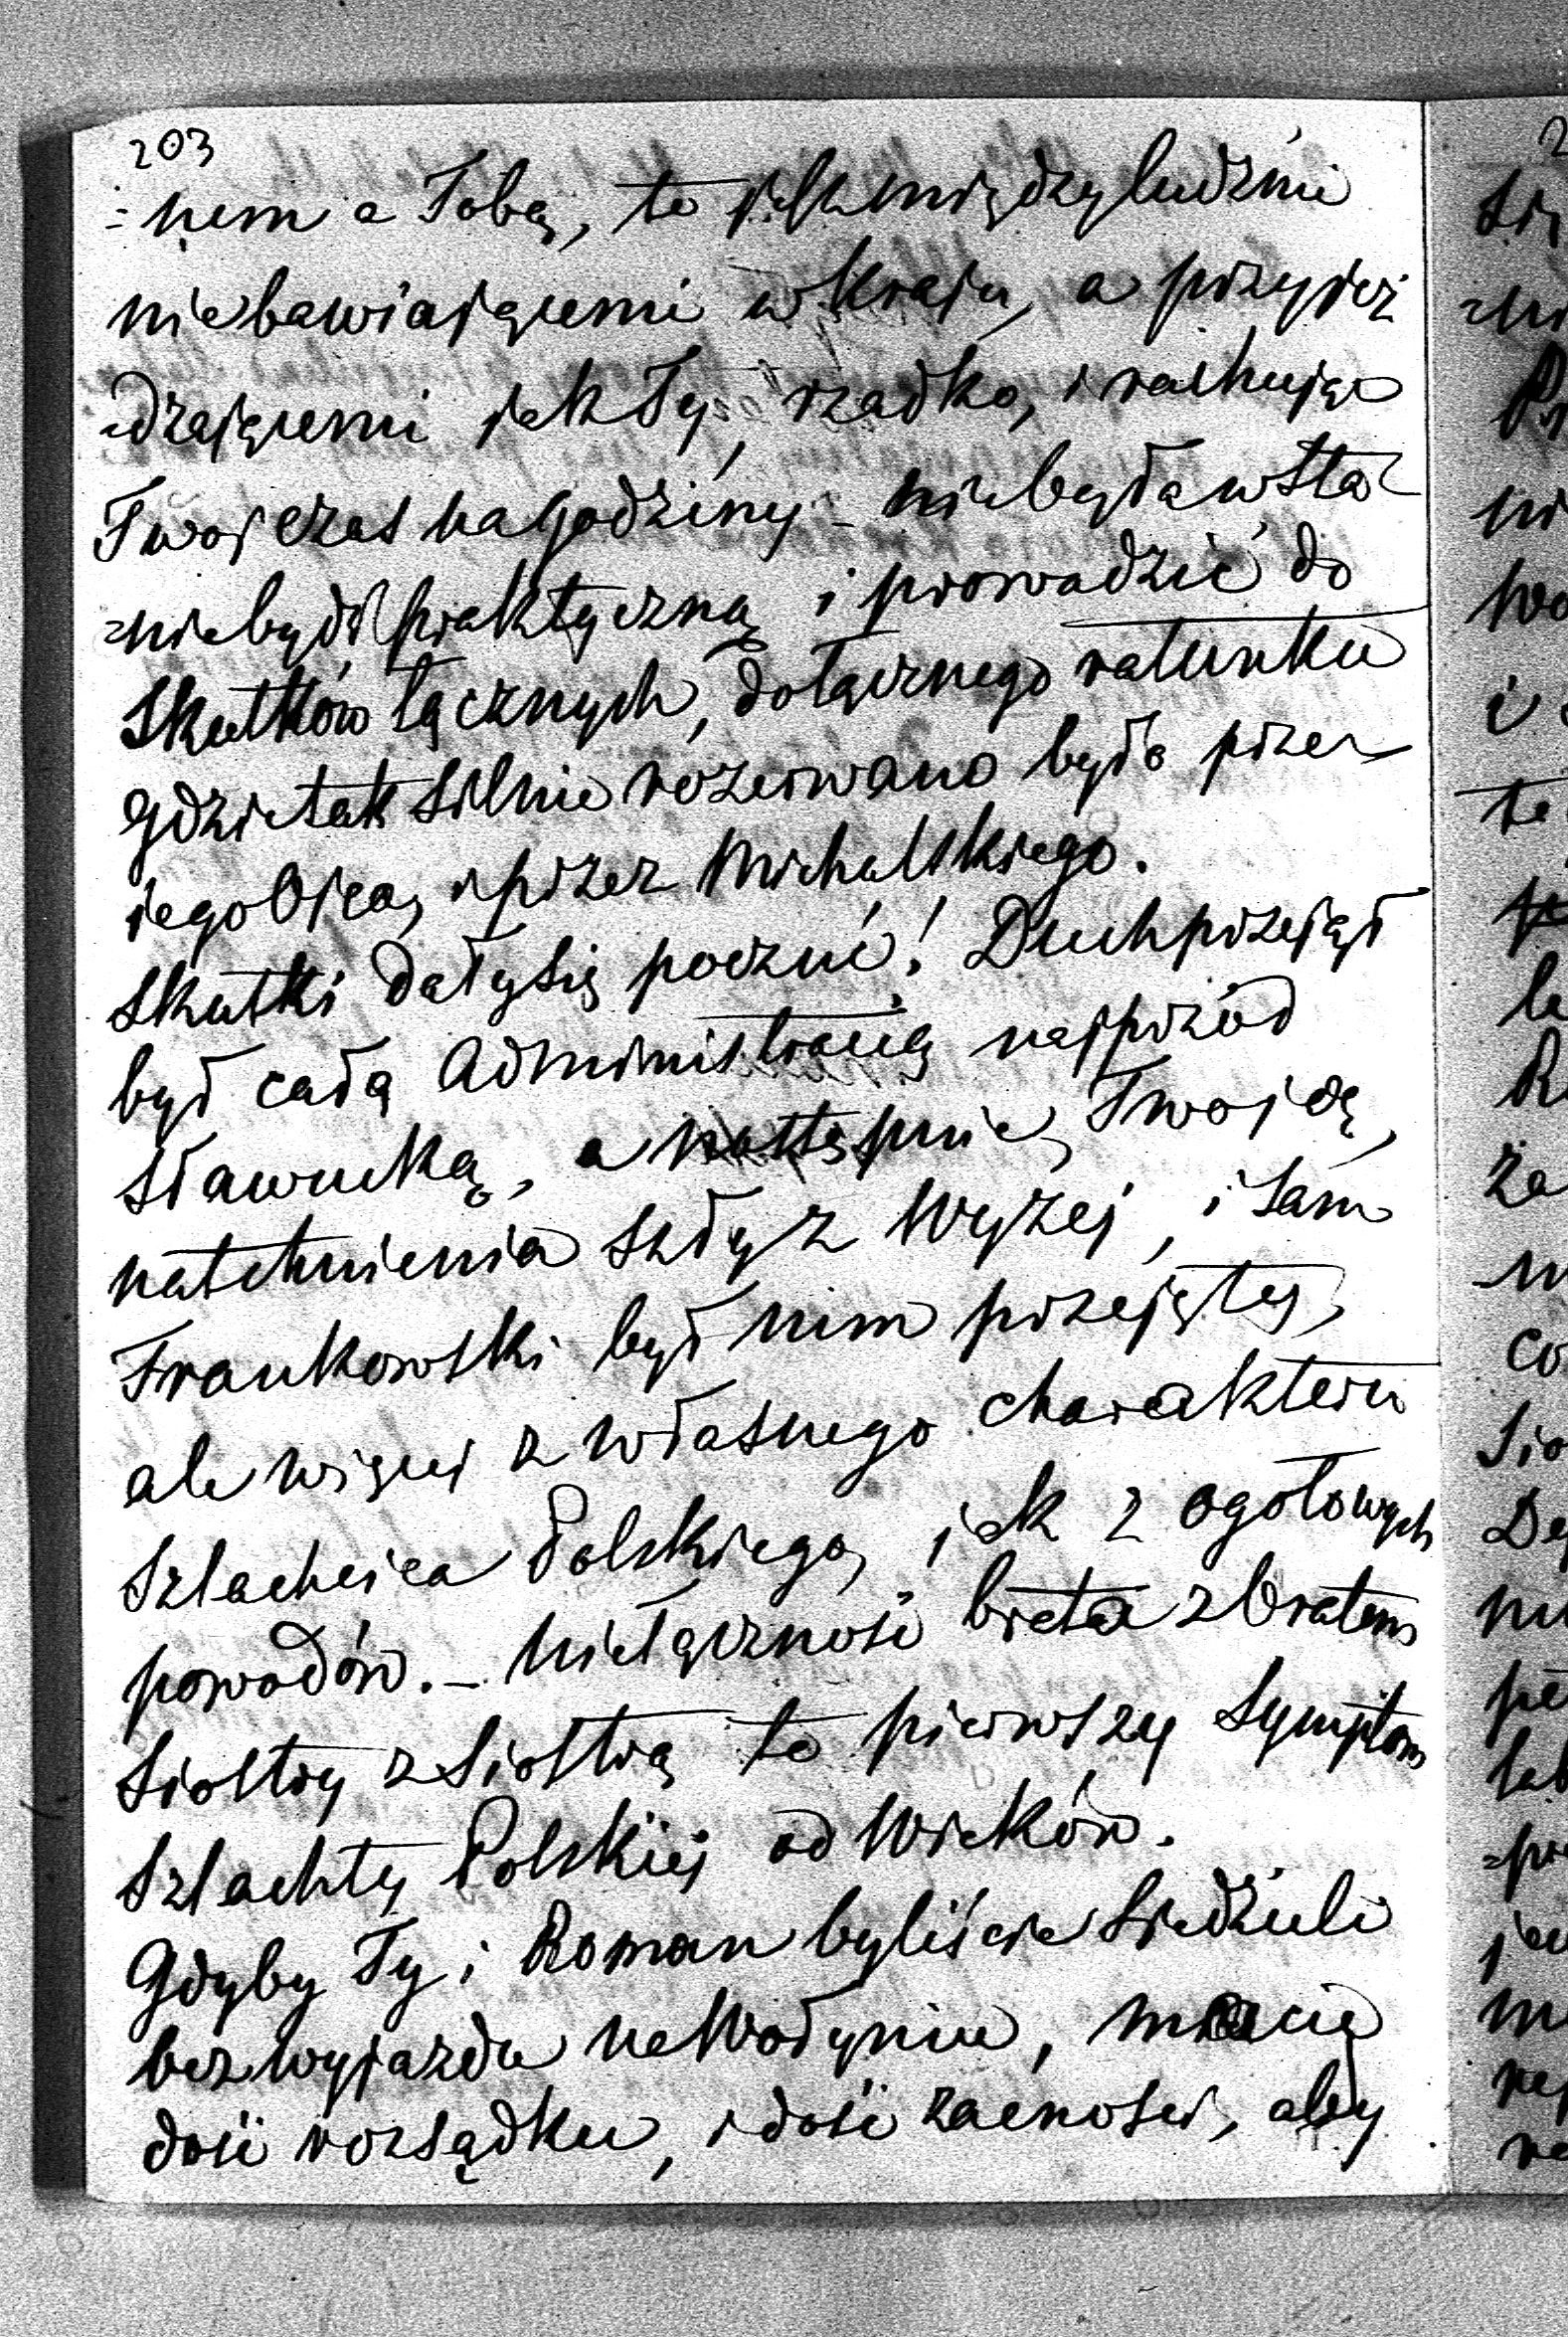 203
=nem a Tobą, to jak między ludźmi
niebawiającemi w kraju, a przyjeż
=dzającemi jak Ty, rzadko, i rachując
Twoj czas na godziny – niebyła w sta
=nie bydź praktyczną i prowadzić do
skutków łącznych, do łącznego ratunku
gdzie tak silnie rozerwano było przez
jego Ojca, i przez Michalskiego.
Skutki dały się poczuć! Duch przejął
był całą Administracią najprzód
Sławucką, a następnie, Twoją,
natchnienia szły z wyżej, i sam
Frankowski był nim przejęty,
ale więcej z własnego charakteru
Szlachcica Polskiego, jak z ogołowych
powodów. – Niełączność brata z bratem
Siostry z Siostrą to pierwszy Symptom
Szlachty Polskiej od Wieków.
Gdyby Ty i Roman byliście siedzieli
bez wyjazdu na Wołyniu, macie
dość rozsądku, i dość zacności, aby